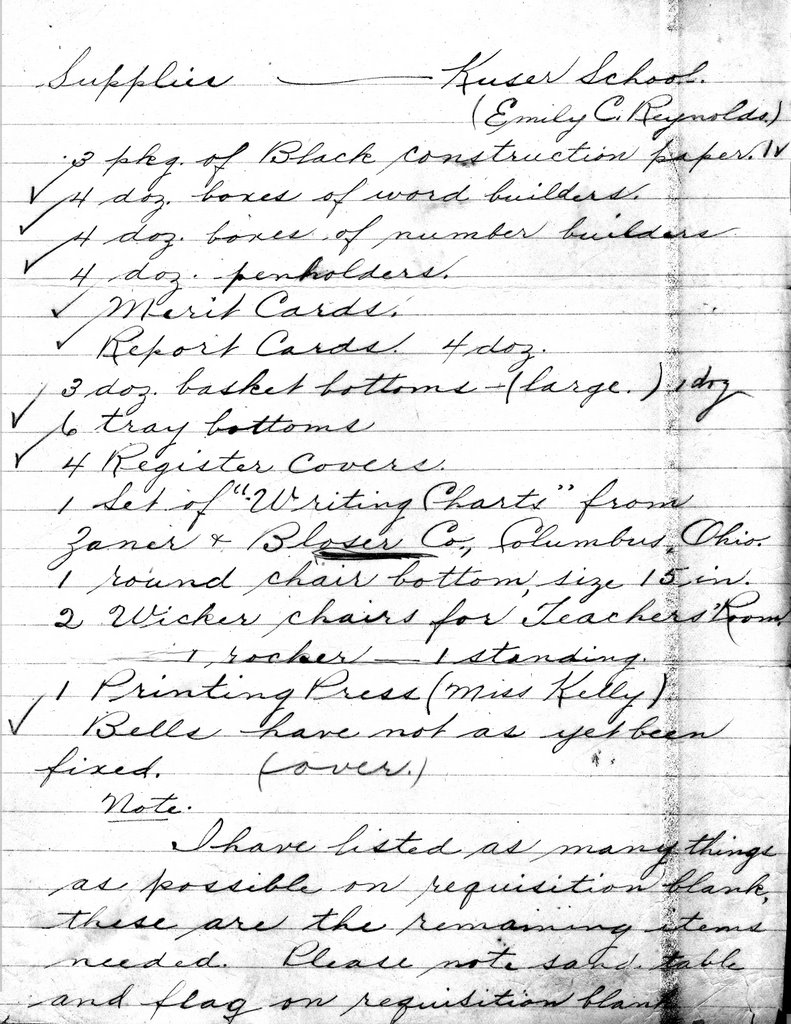 Supplies — Kuser School.
(Emily C. Reynolds.)
3 pkg. of Black construction paper.
✓ 4 doz. boxes of word builders.
✓ 4 doz. boxes of number builders
✓ 4 doz. penholders.
✓ Merit Cards.
✓ Report Cards. 4 doz.
3 doz. basket bottoms - (large.) 1 doz
✓ 6 tray bottoms
✓ 4 Register Covers.
1 Set of "Writing Charts" from
Zaner & Bloser Co., Columbus, Ohio.
1 round chair bottom, size 15 in.
2 Wicker chairs for Teachers' Room
1 rocker — 1 standing.
✓ 1 Printing Press (Miss Kelly)
Bells have not as yet been
fixed. (over.)
Note.
I have listed as many things
as possible on requisition blank,
these are the remaining items
needed. Please note sand-table
and flag on requisition blank